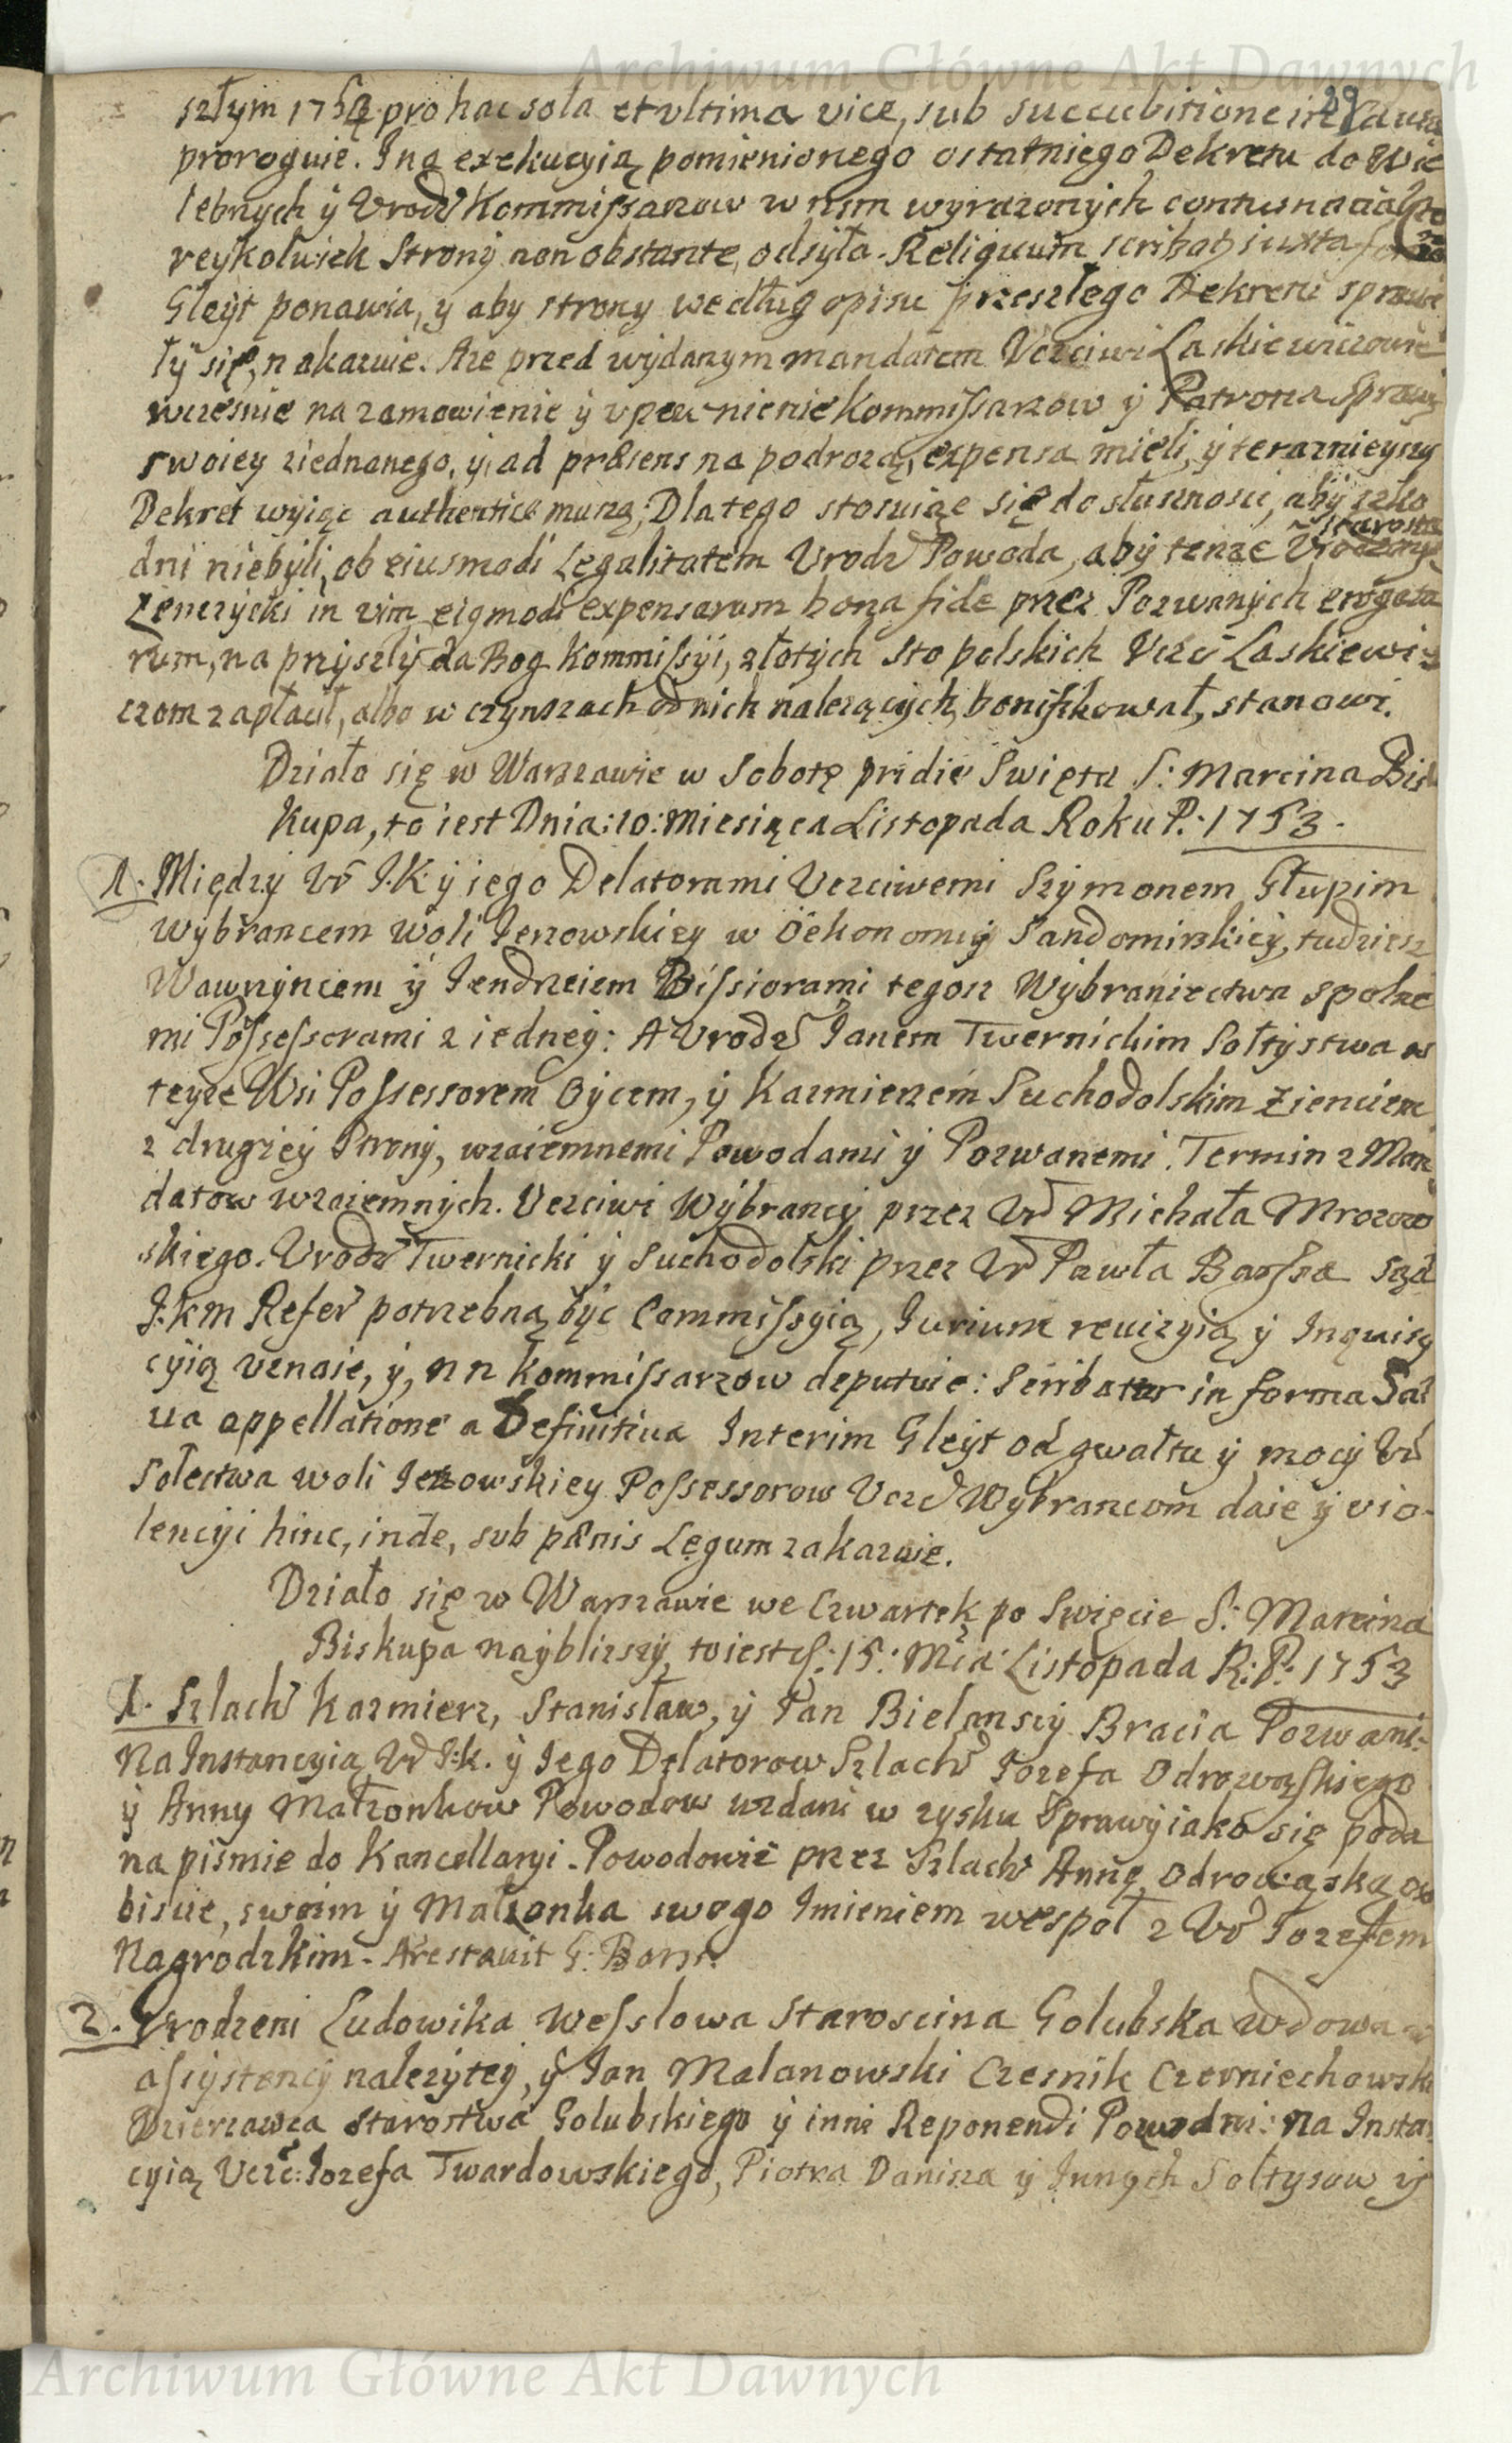 Archiwum Główne Akt Dawnych
29
szłym 1754 pro hac sola et vltima vice, sub succubitione in Causa
proroguie. Iną exekucyią pomienionego ostatniego Dekretu do Wie
lebnych ÿ Vrodz Kommissarzow w nim wyrazonych contumacia kto
reykolwiek Strony non obstante, odsyła. Reliquum scribat iuxta for
Gleyt ponawia, ÿ aby strony według opisu przeszłego Dekretu sprawi
ły się, nakazuie. Aze przed wydanym mandatem Vczciwi Laskiewiczowie
wczesnie na zamowienie ÿ vpewnienie Kommissarzow ÿ Patrona Sprawy
swoiey ziednanego, ÿ ad præsens na podrozą, expensa mieli, ÿ terazniejszy
Dekret wyiąc authentice muszą; Dlatego stosuiąc się do słusznosci, aby szko
dni niebyli, ob eiusmodi Legalitatem Vrodz Powoda, aby tenze Starosta
Zenczycki in vim eigmodi expensarum bona fide przez Pozwanych eroga ta
rum, na przyszły da Bog Kommissyi, złotych sto polskich Vczc Laskiewi
czom zapłacił, albo w czynszach od nich nalezących, bonifikował, stanowi.
Działo się w Warszawie w Sobotę pridie Swięta S: Marcina Bis
kupa, to iest Dnia: 10: Miesiąca Listopada Roku P: 1753.
1. Między Vr I.K ÿ iego Delatorami Vczciwemi Szymonem Głupim
Wybrancem Woli Ierzowskiey w Oekonomiy Sandomirskiey, tudziesz
Wawrzyncem ÿ Iendrzeiem Bissiorami tegosz Wybraniectwa spolne
mi Possessorami z iedney: A Vrodz Ianem Twernickim Sołtystwa w
teyze Wsi Possessorem Oycem, ÿ Kazmierzem Suchodolskim Zienciem
z drugiey Strony, wzaiemnemi Powodami ÿ Pozwanemi. Termin z Man
datow wzaiemnych. Vczciwi Wybrancy przez Vr Michała Mrozow
skiego. Vrodz Twernicki ÿ Suchodolski przez Vr Pawła Barssa Sąd
I.km Refer potrzebną być Commissyią, Iurium reuizyią ÿ Inquizy
cyią vznaie, ÿ, nn Kommissarzow deputuie: Scribatur in forma Sal
ua appellatione a Definitiua Interim Gleyt od gwałtu ÿ mocy Vr
Sołectwa woli Ierzowskiey Possessorow Vczc Wybrancom daie ÿ vio-
lencyi hinc, inde, sub pænis Legum zakazuie.
Działo się w Warszawie we Czwartek po Swięcie S: Marcina
Biskupa nayblizszy, to iest d: 15: Mca Listopada R: P: 1753
1. Szlach Kazmierz, Stanisław, ÿ Jan Bielanscy Bracia Pozwani:
Na Instancyią Vr I:k. ÿ Iego Delatorow Szlach Iozefa Odrowąskiego
ÿ Anny Małzonkow Powodow wzdani w zysku Sprawy iako się poda
na pismie do Kancellaryi. Powodowie przez Szlach Annę Odrowąską oso
biscie, swoim ÿ Małzonka swego Imieniem wespoł z Vr Iozefem
Nagrodzkim. Arestauit G: Barss.
2. Vrodzeni Ludowika Wesslowa Staroscina Golubska Wdowa w
assystency nalezytey, ÿ Ian Malanowski Czesnik Czerniechowski
Dzierzawca Starostwa Golubskiego ÿ inni Reponendi Powodni: Na Insta
cyią Vczc: Iozefa Twardowskiego, Piotra Danisza ÿ Innych Sołtysow ÿ
Archiwum Główne Akt Dawnych